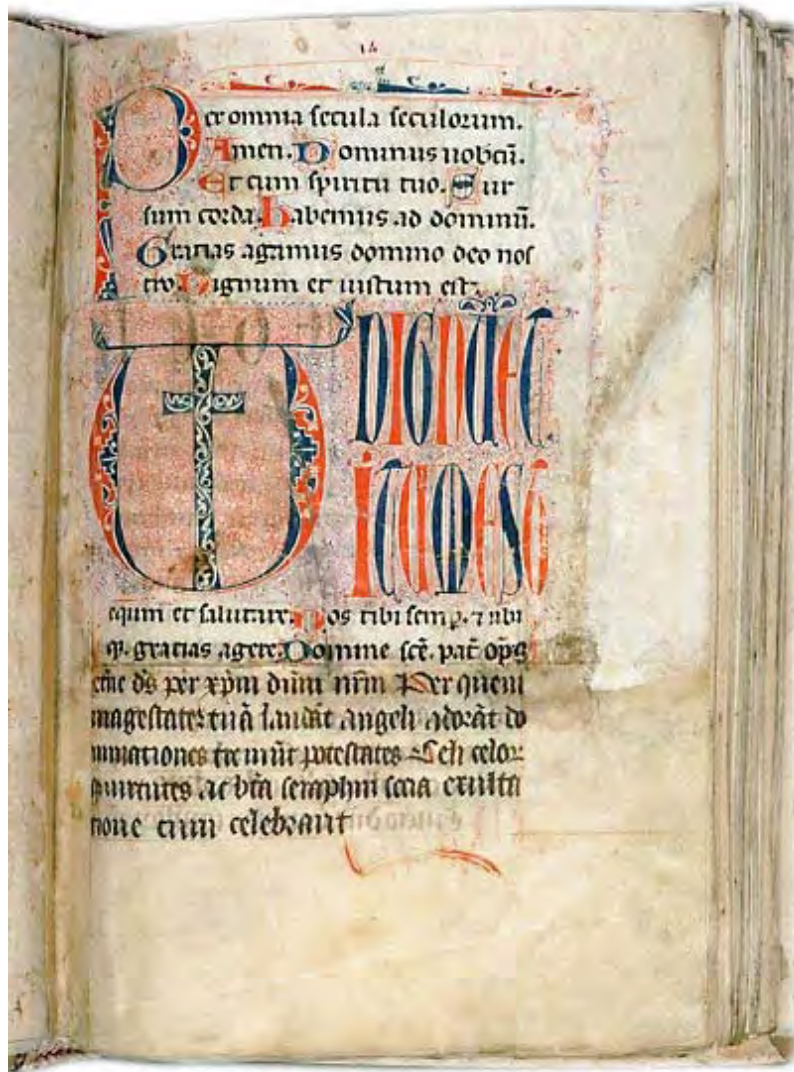 Per omnia secula seculorum.
Amen. Dominus uobcū.
Et cum spiritu tuo. Sur
sum corda. habemus ad dominū.
Gratias agamus domino deo nos
tro. Dignum et iustum est.
DIGNŪ ET
IUSTUM EST
equm et salutare. Nos tibi semp. ⁊ ubi
q. gratias agere. Domine scē. pat̄ op̄s
et̄ne d̄s per xp̄m dn̄m nr̄m Per quem
magestatē tuā laudāt angeli adorāt do
minationes tremūt potestates Celi celor
quirtutes ac bt̄a seraphin socia exulta
tione cum celebrant